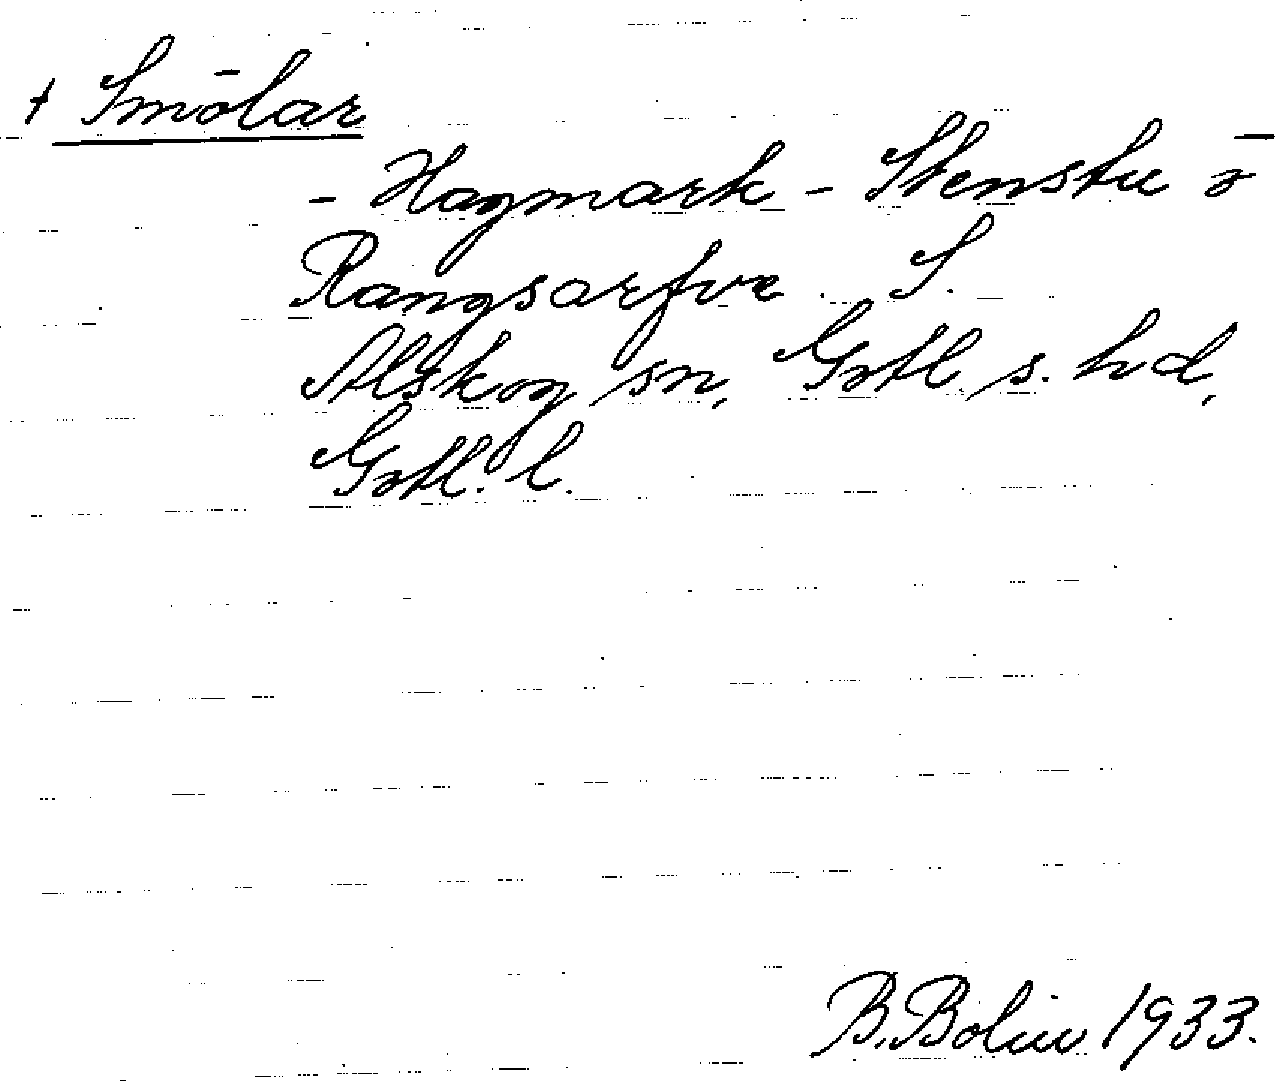 + Smölar
- Hagmark - Stenstu o
Rangsarfve S.
Alskog sn, Gotl. s. hd,
Gotl. l.
B. Bolin 1933.